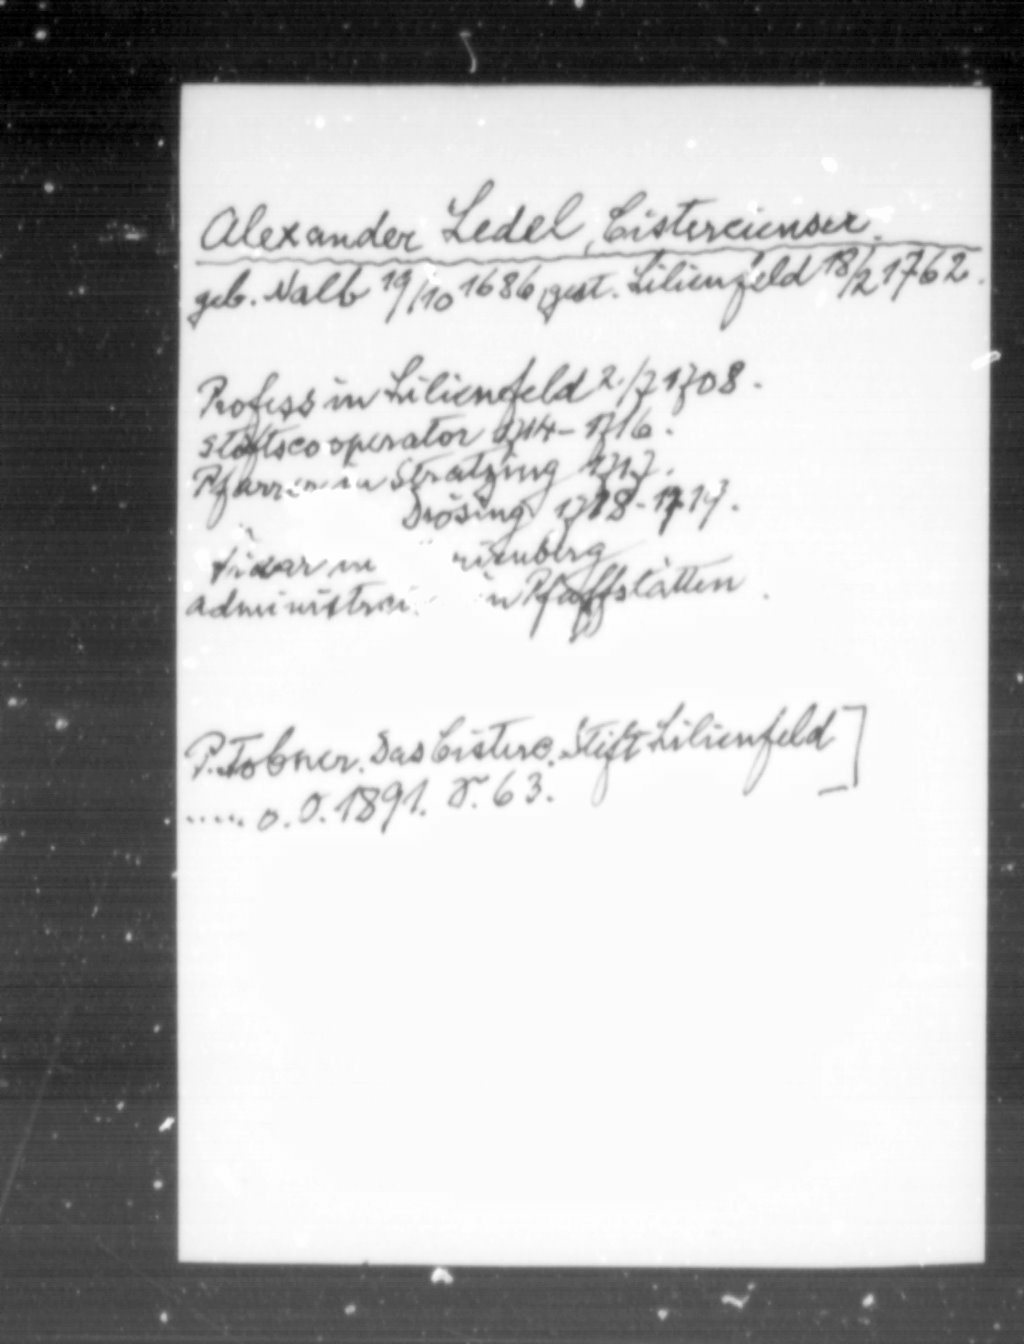 Alexander Ledel, Cistercienser.
geb. Nalb 19/10 1686, gest. Lilienfeld 18/2 1762.
Profess in Lilienfeld 2./7 1708.
Stiftscooperator 1714-1716.
Pfarrer in Stratzing 1717.
Drösing 1718-1719.
Vikar in
administra in Pfaffstätten.
P. Tobner. Das Cisterc. Stift Lilienfeld]
..... o. O. 1891. S. 63.